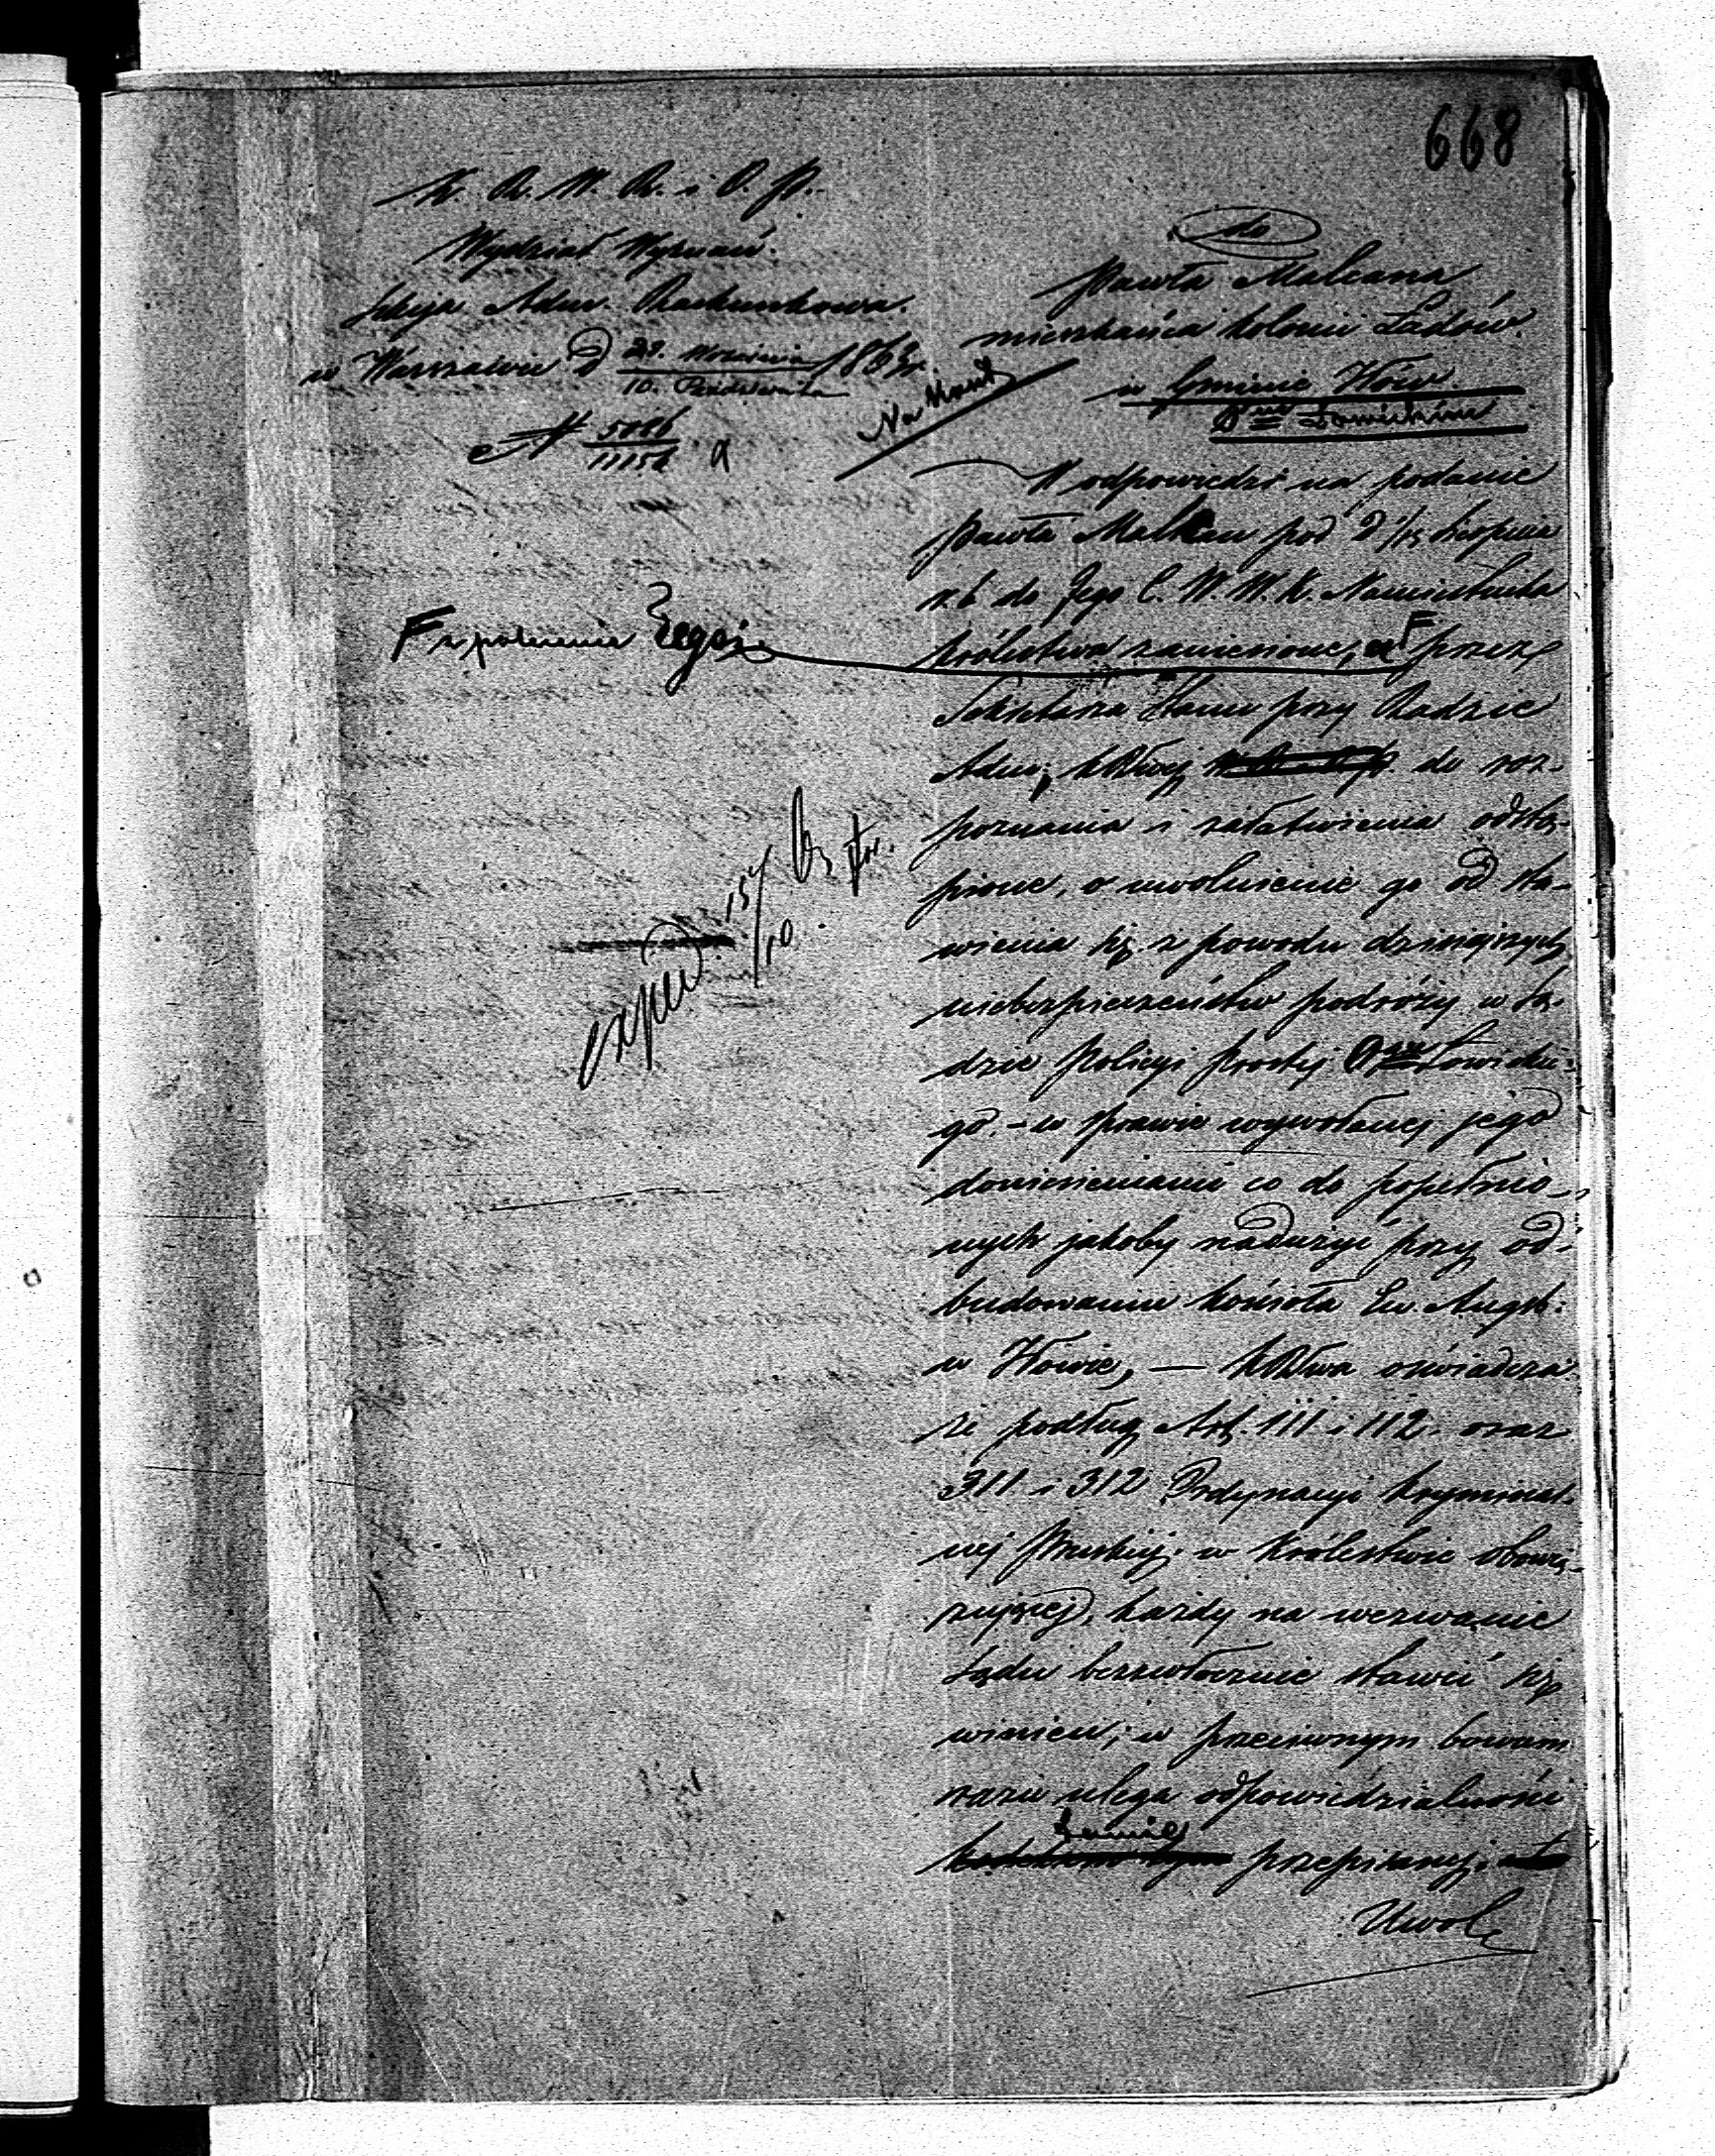 668
K. R. W. R. i O. P.
Wydział Wyznań.
Sekcja Adm. Rachunkowa.
w Warszawie d 28. Września / 10. Października 1863 r.
N 5086 / 11152 a
do
Pawła Malcana
mieszkańca kolonii Ładów.
w Gminie Iłów.
Ptu Łowickim
W odpowiedzi na podanie
Pawła Malkan pod d 1/13 Sierpnia
r. b. do Jego C. W. W. K. Namiestnika
Królestwa zaniesione, a F przez
F z polecenia Tegoż
Sekretarza Stanu przy Radzie
Adm; KRwej do roz-
poznania i załatwienia odstą-
pione, o uwolnienie go od sta-
wienia się z powodu dzisiejszych
niebezpieczeństw podróży w Są-
dzie Policyi Prostej Łowickie-
go. - w sprawie wywołanej jego
doniesieniami co do popełnio-
nych jakoby nadużyć przy od-
budowaniu kościoła Ew. Augsb.
w Iłowie, — KRwa oświadcza
że podług Art. 111 i 112. oraz
311 i 312 Ordynacyi Kryminal-
nej Pruskiej. w Królestwie obowią-
zującej, każdy na wezwanie
Sądu bezzwłocznie stawić się
winien; w przeciwnym bowiem
razie ulega odpowiedzialności
przepisanej;
Uwol
exped 15/10